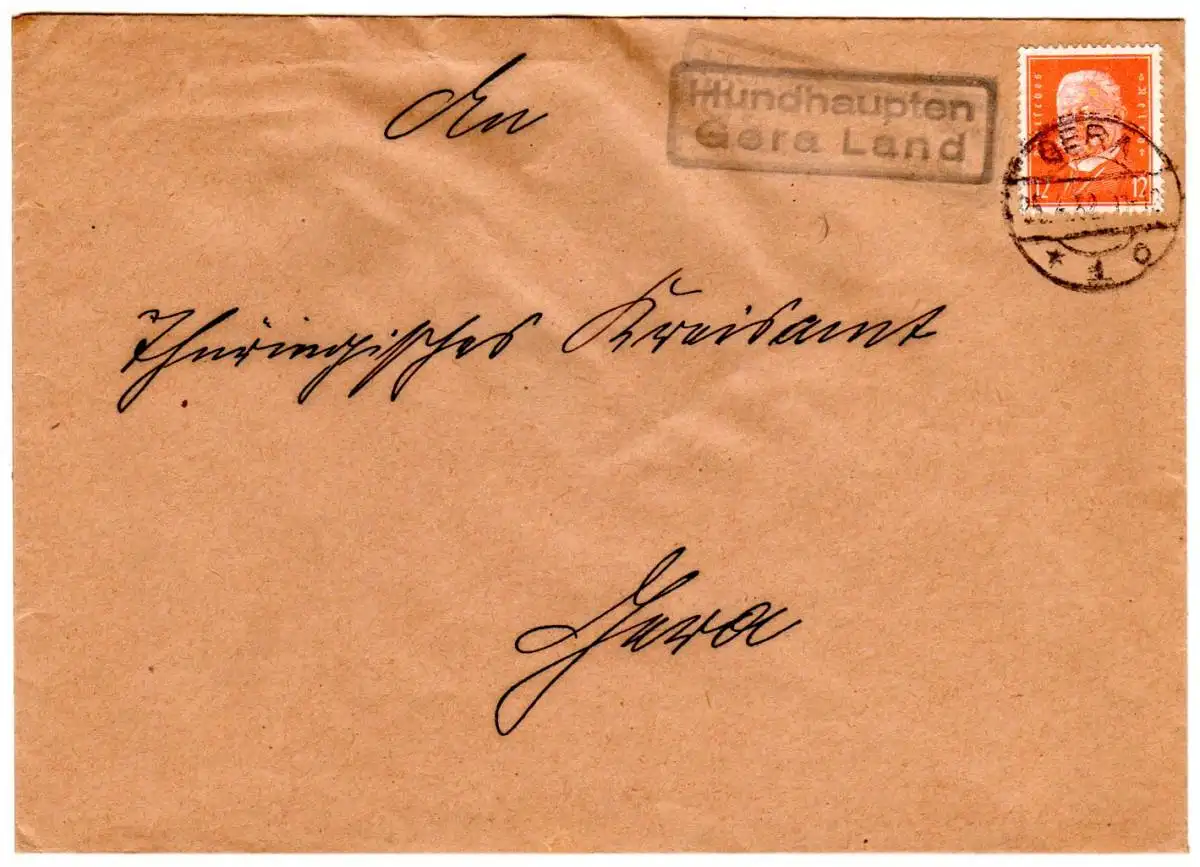 An
Hundhaupten
Gera Land
GERA
12 12
* 1 o
Thüringisches Kreisamt
Gera